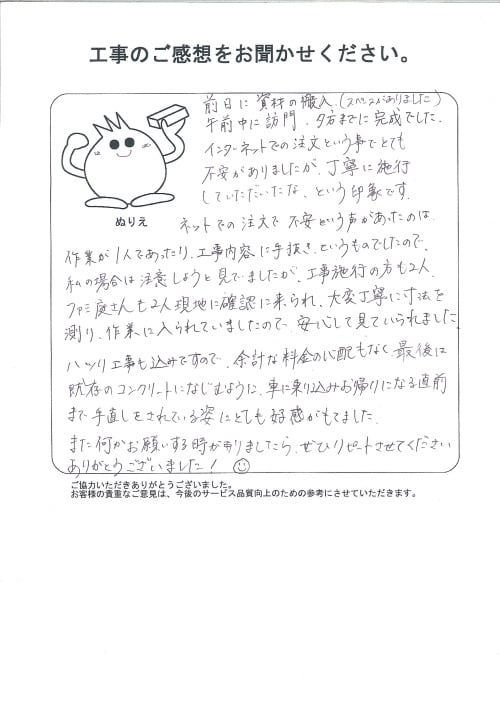 工事のご感想をお聞かせください。
前日に資材の搬入(スペースがありました)
午前中に訪門、夕方までに完成でした。
インターネットでの注文という事でとても
不安がありましたが、丁寧に施行
していただいたな、という印象です。
ぬりえ
ネットでの注文で不安という声があったのは、
作業が1人であったり、工事内容に手抜き、というものでしたので、
私の場合は注意しようと見ていましたが、工事施行の方も2人、
ファミ庭さんも2人現地に確認に来られ、大変丁寧に寸法を
測り、作業に入られていましたので、安心して見ていられました。
ハツリ工事も込みですので、余計な料金の心配もなく、最後に
既存のコンクリートになじむように、車に乗り込みお帰りになる直前
まで手直しをされている姿にとても好感がもてました。
また何かお願いする時がありましたら、ぜひリピートさせてください
ありがとうございました!
ご協力いただきありがとうございました。
お客様の貴重なご意見は、今後のサービス品質向上のための参考にさせていただきます。